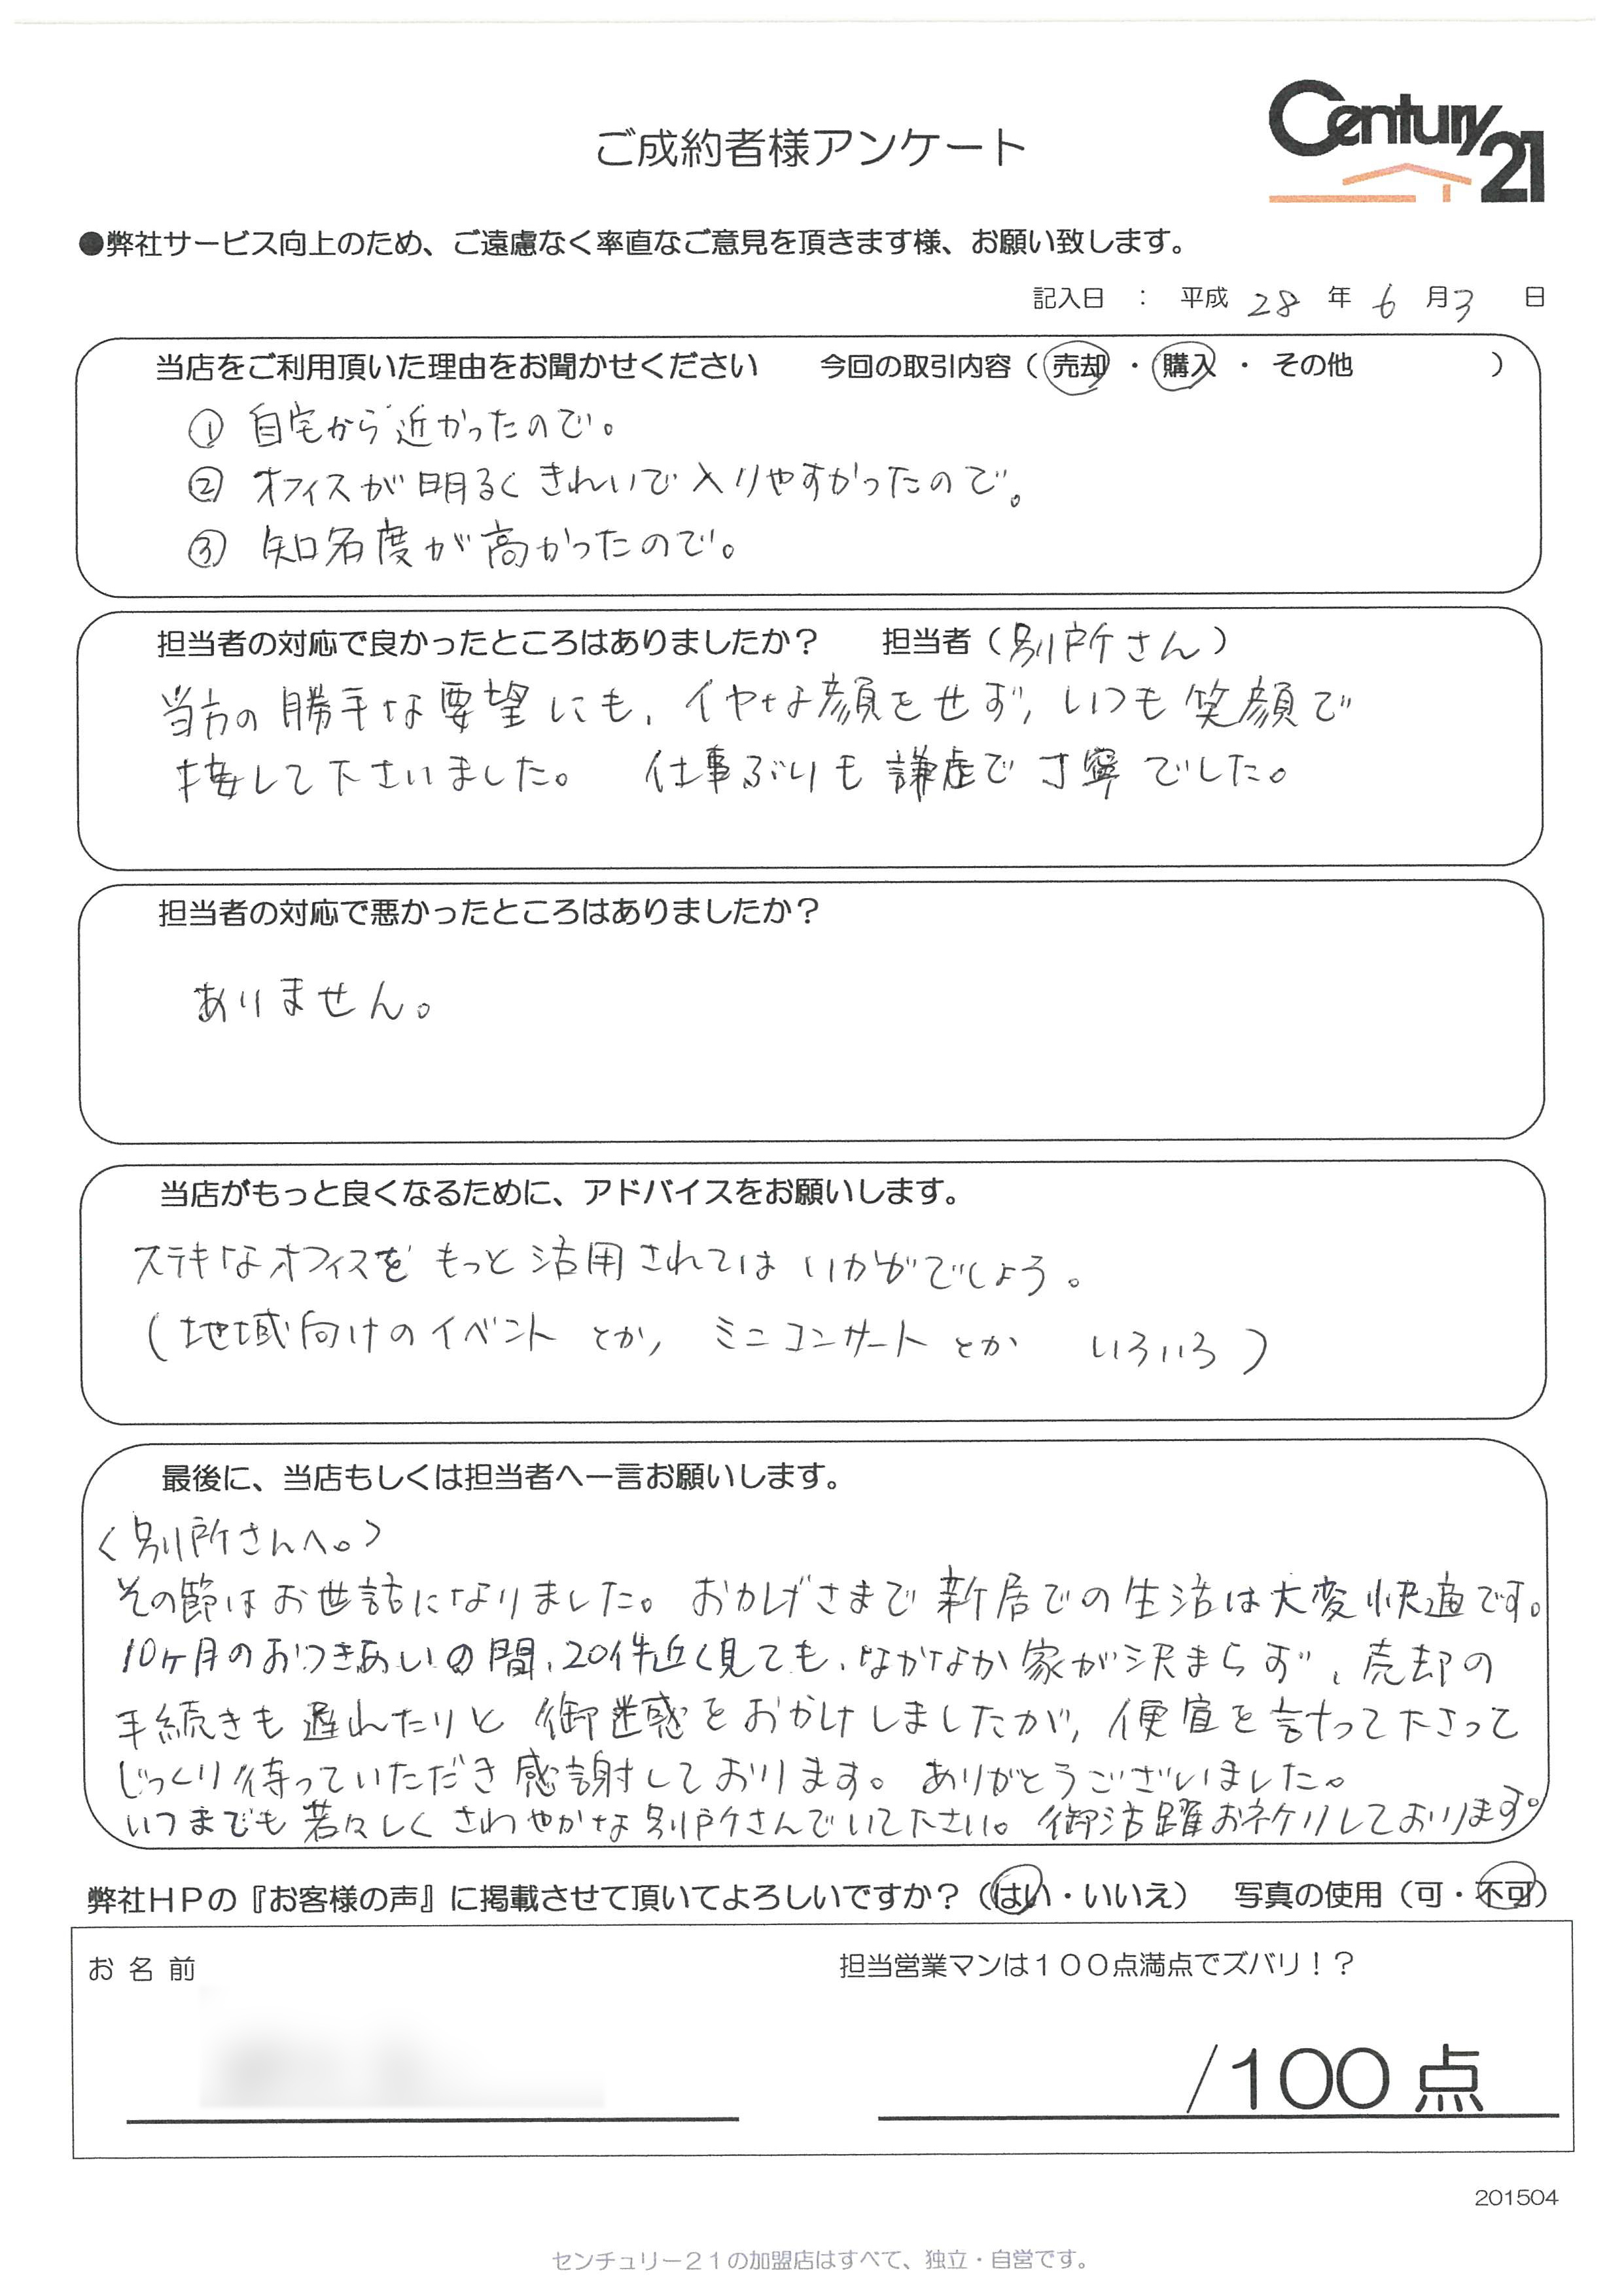 Century 21
ご成約者様アンケート
●弊社サービス向上のため、ご遠慮なく率直なご意見を頂きます様、お願い致します。
記入日 : 平成 28 年 6 月 3 日
当店をご利用頂いた理由をお聞かせください 今回の取引内容（ 売却 ・ 購入 ・ その他 ）
① 自宅から近かったので。
② オフィスが明るくきれいで入りやすかったので。
③ 知名度が高かったので。
担当者の対応で良かったところはありましたか？ 担当者（別所さん）
当方の勝手な要望にも、イヤな顔をせず、いつも笑顔で
接して下さいました。 仕事ぶりも謙虚で丁寧でした。
担当者の対応で悪かったところはありましたか？
ありません。
当店がもっと良くなるために、アドバイスをお願いします。
ステキなオフィスをもっと活用されてはいかがでしょう。
（地域向けのイベントとか、ミニコンサートとか いろいろ）
最後に、当店もしくは担当者へ一言お願いします。
〈別所さんへ。〉
その節はお世話になりました。おかげさまで新居での生活は大変快適です。
10ヶ月のおつきあいの間、20件近く見ても、なかなか家が決まらず、売却の
手続きも遅れたりと御迷惑をおかけしましたが、便宜を計って下さって
じっくり待っていただき感謝しております。ありがとうございました。
いつまでも若々しくさわやかな別所さんでいて下さい。御活躍お祈りしております。
弊社ＨＰの『お客様の声』に掲載させて頂いてよろしいですか？（はい・いいえ） 写真の使用（可・不可）
お名前 担当営業マンは１００点満点でズバリ！？
/100点
201504
センチュリー２１の加盟店はすべて、独立・自営です。